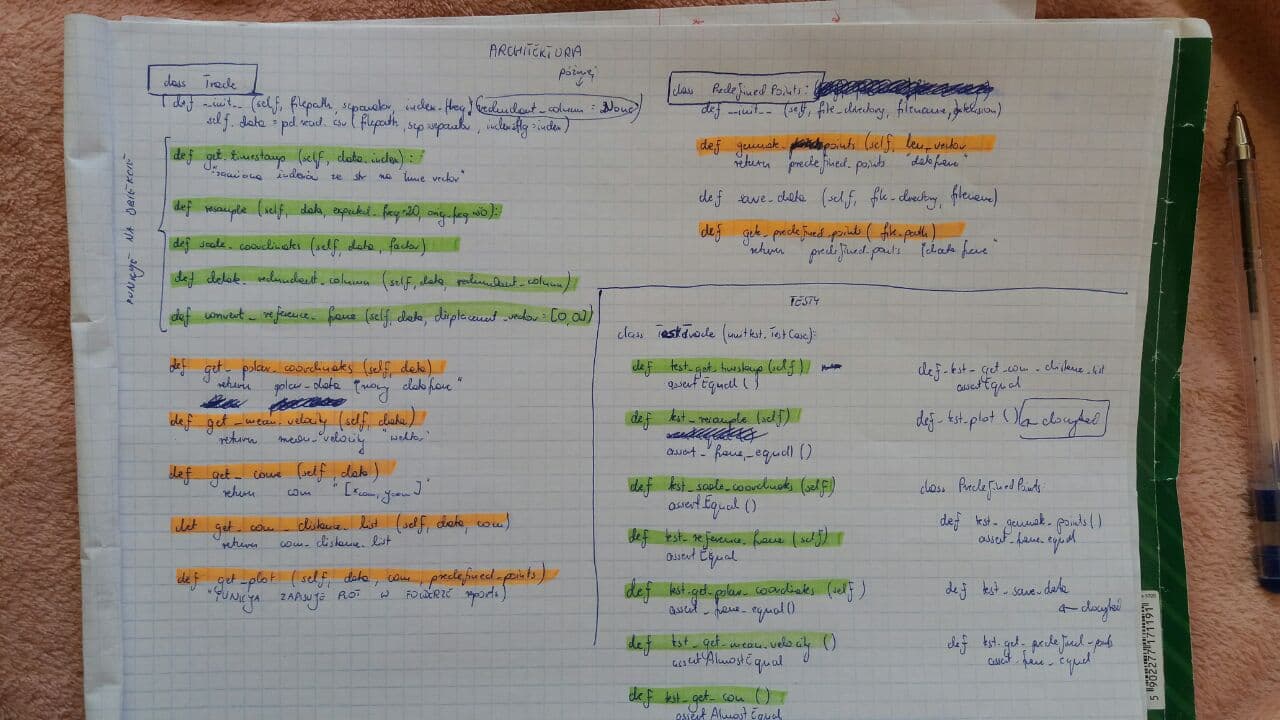 ARCHITEKTURA
później
class Trade
def __init__ (self, filepath, separator, index-freq, redundant_column = None)
self. data = pd.read_csv (filepath, sep=separator,
FUNKCJE NA OBIEKCIE
def get_timestamp (self, data, index) :
"zamiana indexów ze str na time vector"
def resample (self, data, expected_freq=20, orig_freq=50):
def scale_coordinates (self, data, factor)
def delete_redundant_column (self, data, redundant_column)
def convert_reference_frame (self, data, displacement_vector = [0,0])
def get_polar_coordinates (self, data)
return polar_data "nowy dataframe"
def get_mean_velocity (self, data)
return mean_velocity
def get_com (self, data)
return com "[xcom, ycom]"
def get_com_distance_list (self, data, com)
return com_distance_list
def get_plot (self, data, com, predefined_points)
"FUNKCJA ZAPISUJE PLOT W FOLDERZE reports)
class Predefined Points:
def __init__ (self, file_directory, filename, extension)
def generate_points (self, len_vector
return predefined_points "dataframe"
def save_data (self, file_directory, filename)
def get_predefined_points ( file_path)
return predefined_points "dataframe"
TESTY
class TestTrade (unittest.TestCase):
def test_get_timestamp (self)
assert Equal ( )
def test_resample (self)
assert_frame_equal ( )
def test_scale_coordinates (self)
assert Equal ( )
def test_reference_frame (self)
assert Equal
def test_get_polar_coordinates (self)
assert_frame_equal ( )
def test_get_mean_velocity ( )
assert Almost Equal
def test_get_com ( )
assert Almost Equal
def_test_get_com_distance_list
assert Equal
def_test_plot ( ) ← doczytać
class PredefinedPoints:
def test_generate_points ( )
assert_frame_equal
def test_save_data
← doczytać
def test_get_predefined_points
assert_frame_equal
5 902277 171191